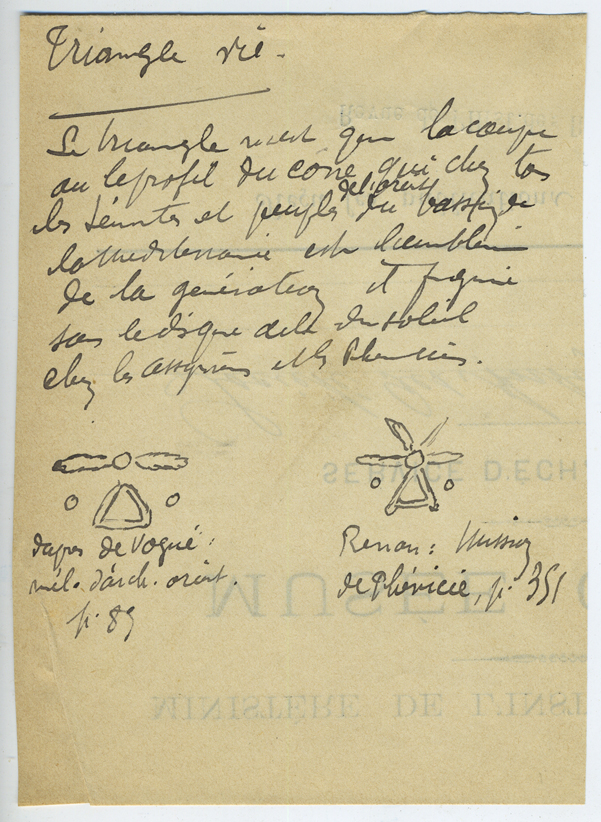 Triangle vie -
Le triangle n'est que la coupe
ou le profil du cône qui chez tos
de l'orient
les sémites et peuples du bassin de
la mediterranie est l'embleme
de la génération et figure
sous le disque aile du soleil
chez les assyriens et les Phéniciens.
SERVICE D'ECH
dapres de Vogué :
mél. d'arch. orient.
p. 89
Renan : Mission
de Phénicie, p. 351
MUSÉE
MINISTÈRE DE L'INST